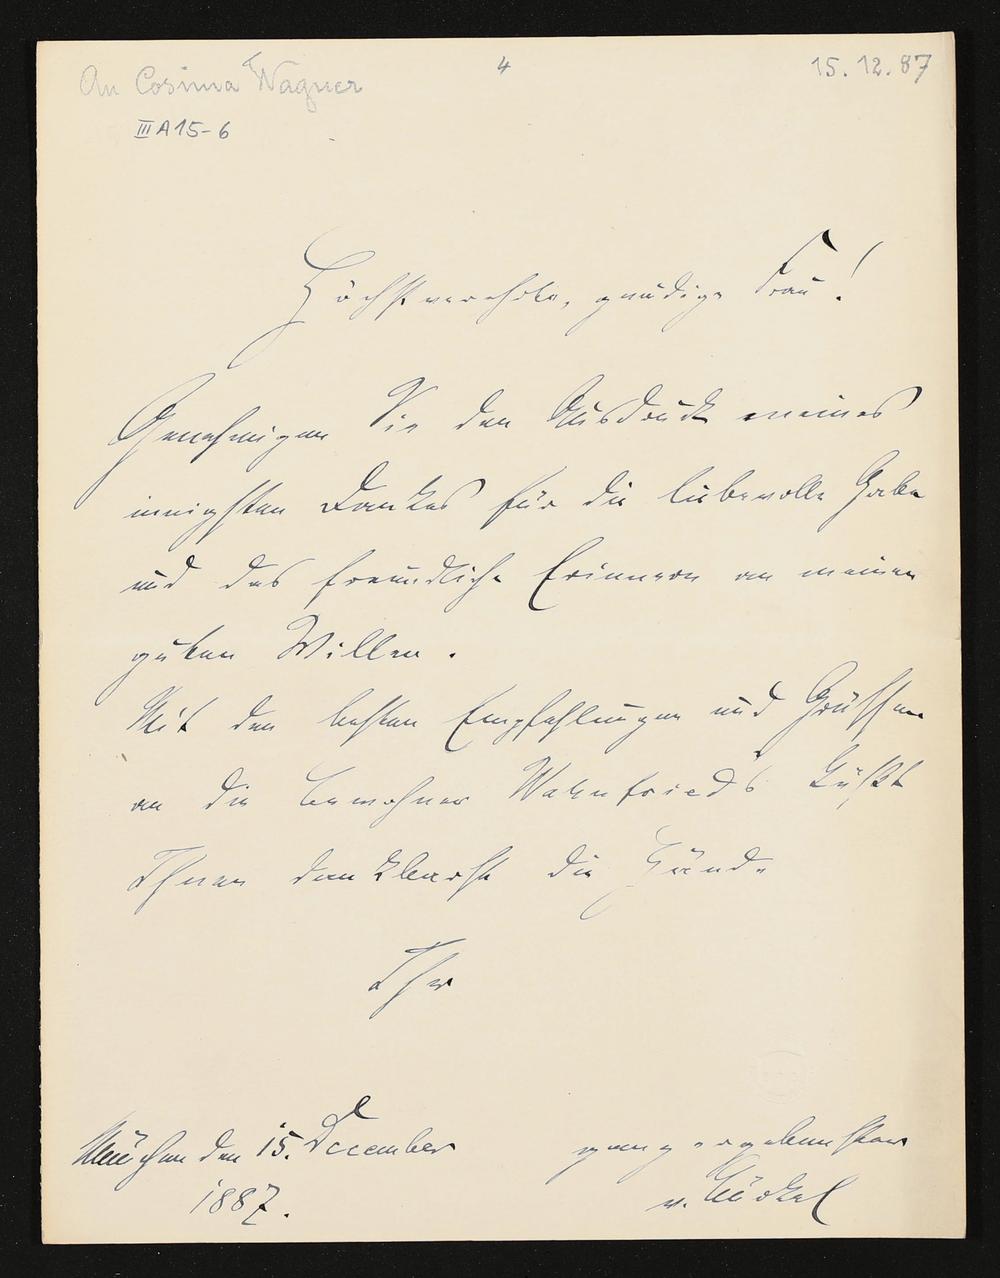 An Cosima Wagner
4
15.12.87
III A 15-6
Höchstverehrte, gnädige Frau!
Genehmigen Sie den Ausdruck meines
innigsten Dankes für die liebevolle Gabe
und das freundliche Erinnern an meinen
guten Willen.
Mit den besten Empfehlungen und Grüssen
an die Bewohner Wahnfried's küßt
Ihnen dankbarst die Hände
Ihr
ganz ergebenster
v. Bürkel
München den 15. December
1887.